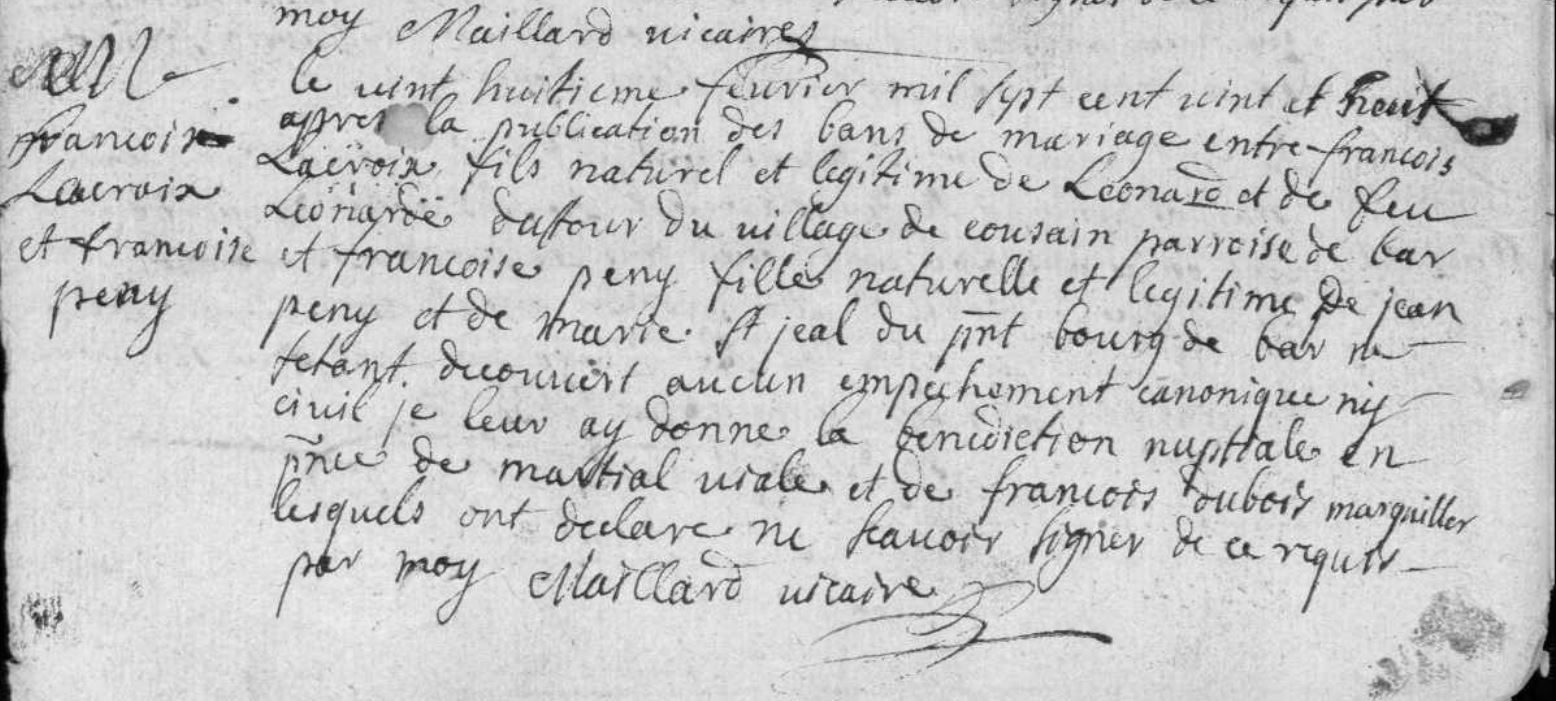 moy Maillard vicaires
le vint huitieme fevrier mil sept cent vint et heuit
apres la publication des bans de mariage entre francois
Lacroix fils naturel et legitime de Leonard et de feu
Leonarde dufour du village de cousain parroise de bar
et francoise peny fille naturelle et legitime de jean
peny et de marie st jeal du pnt bourg de bar ne
setant decouvert aucun empechement canonique ny
civil je leur ay donne la benediction nuptiale en
pnce de martial viale et de francois dubois marguiller
lesquels ont declare ne scavoir signer de ce requis
par moy Maillard vicaire
francois
Lacroix
et francoise
peny